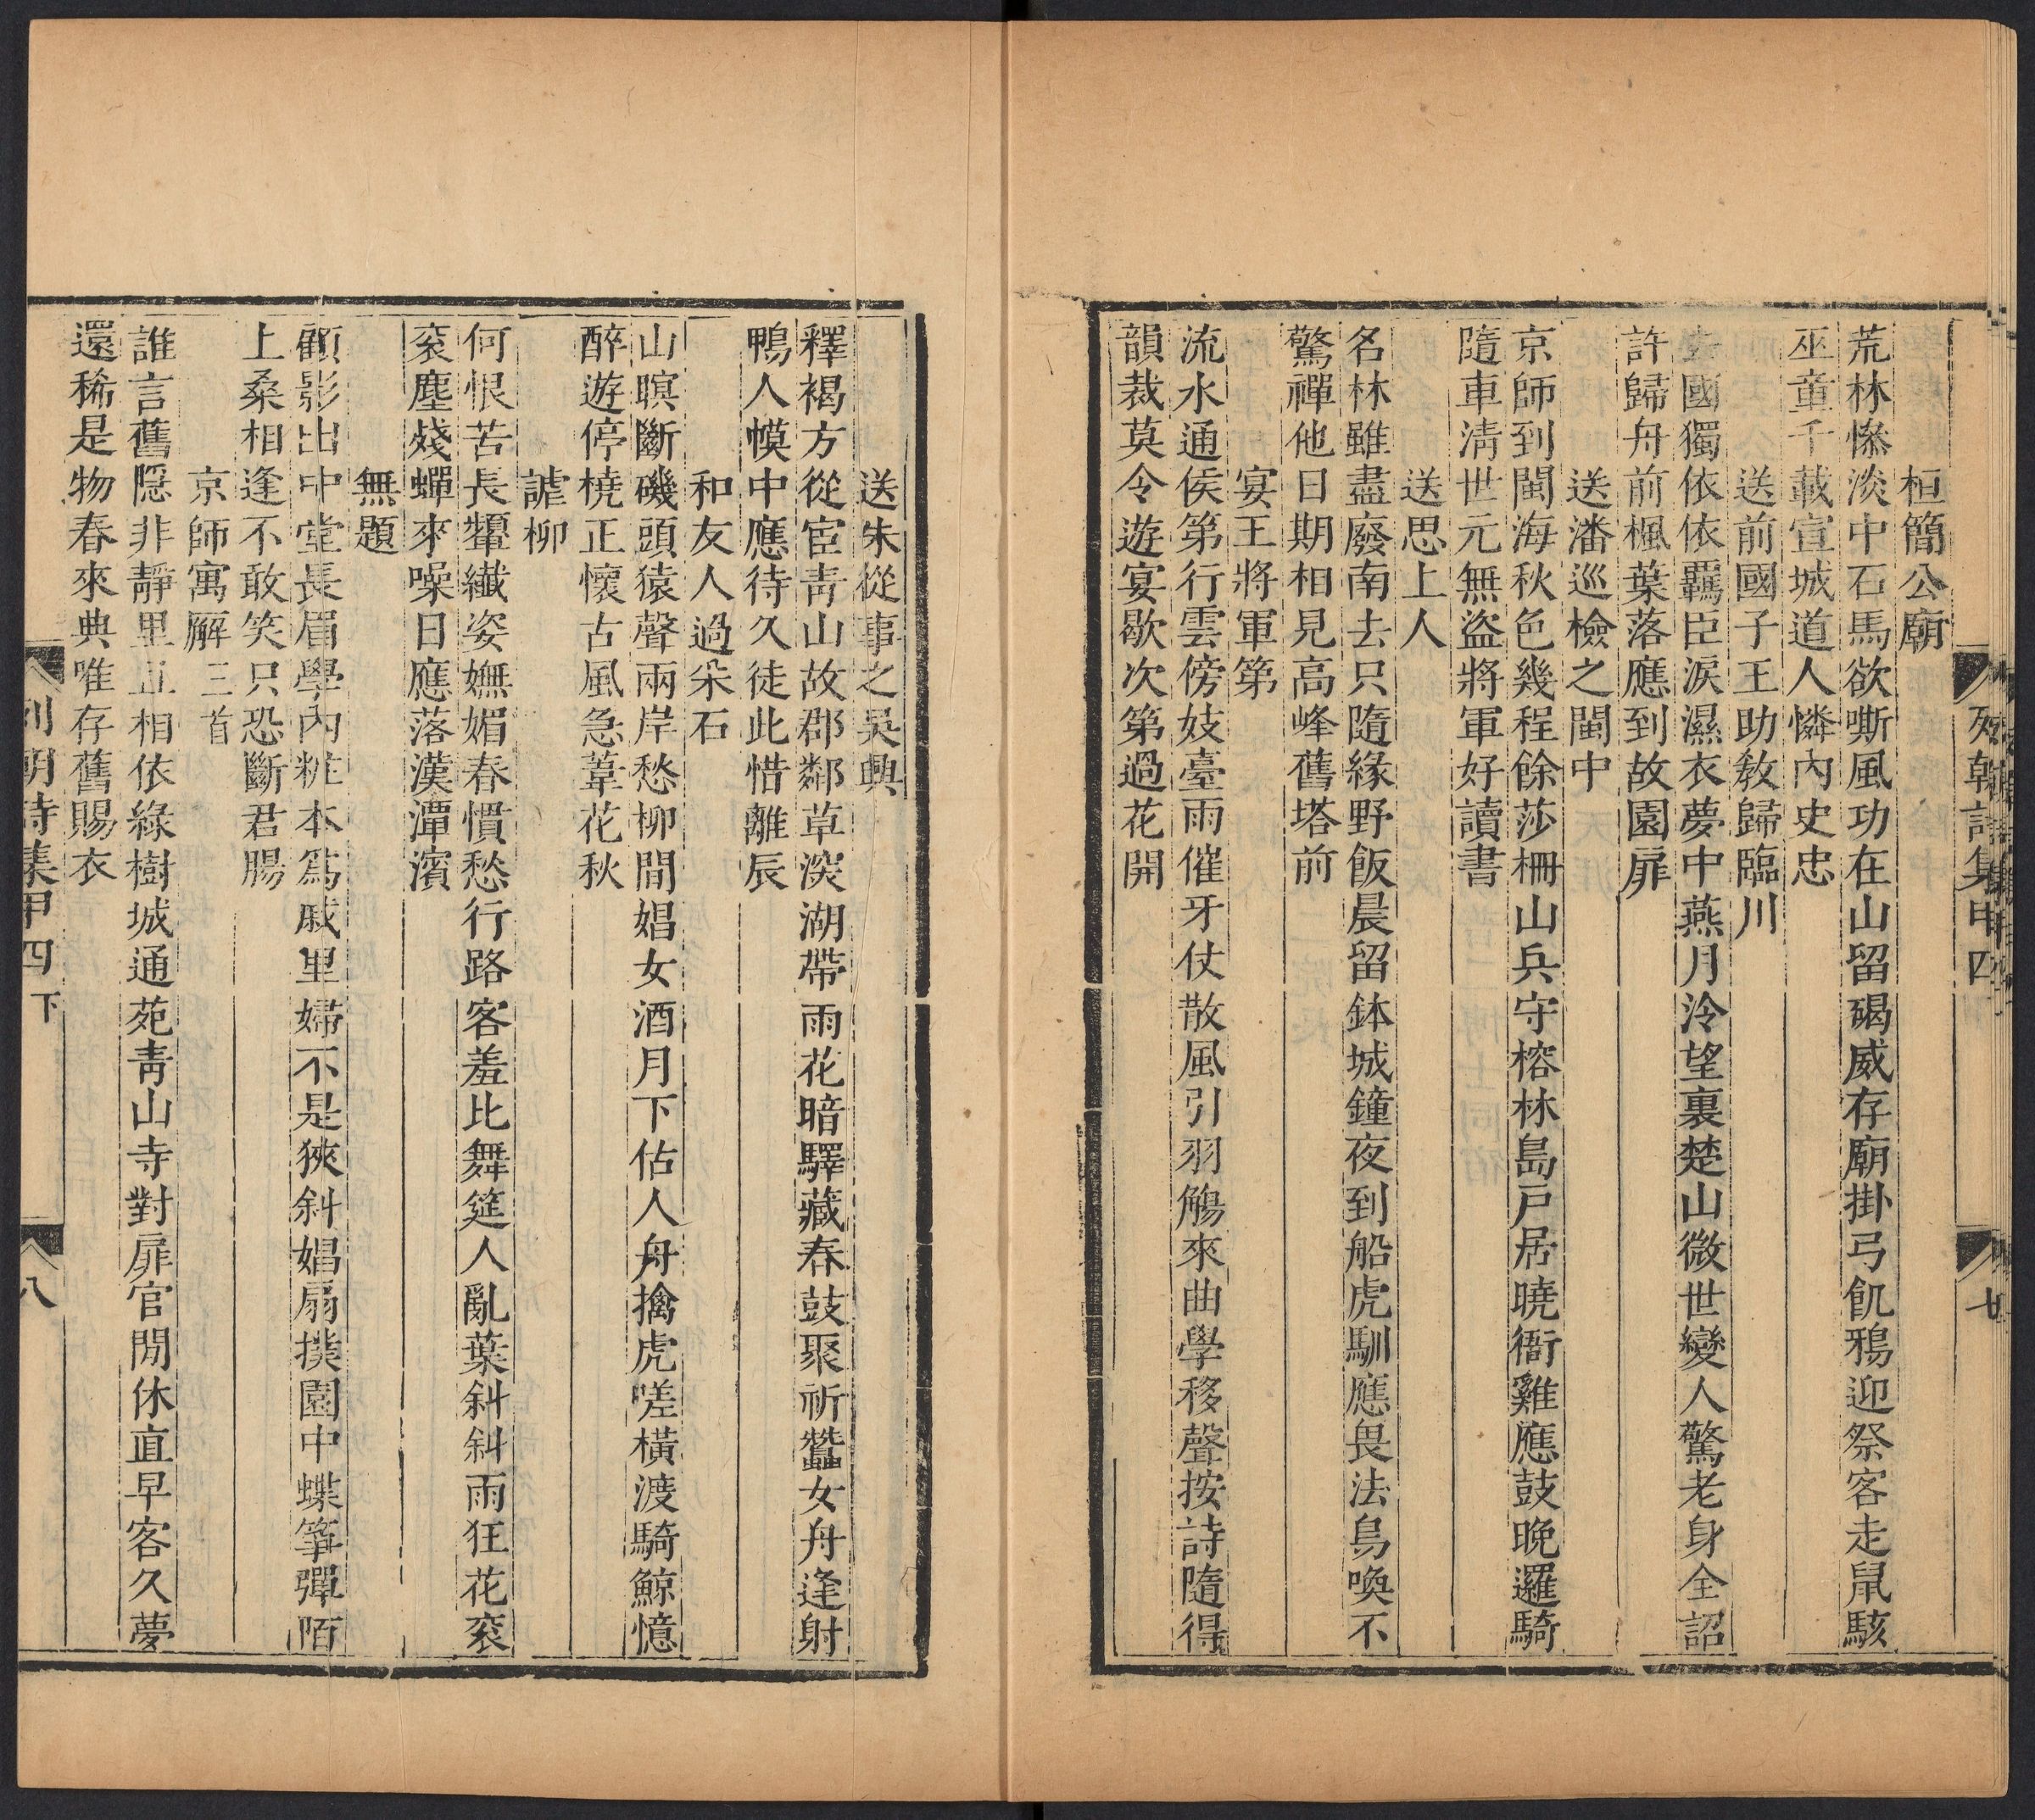 桓簡公廟
荒林慘淡中石馬欲嘶風功在山留碣威存廟掛弓飢鴉迎祭客走鼠駭
巫童千載宣城道人憐內史忠
送前國子王助教歸臨川
去國獨依依羈臣淚濕衣夢中燕月冷望裏楚山微世變人驚老身全詔
許歸舟前楓葉落應到故園扉
送潘巡檢之閩中
京師到閩海秋色幾程餘莎柵山兵守榕林島戸居曉衙雞應鼓晚邏騎
隨車淸世元無盜將軍好讀書
送思上人
名林雖盡廢南去只隨緣野飯晨留鉢城鐘夜到船虎馴應畏法鳥喚不
驚禪他日期相見高峰舊塔前
宴王將軍第
流水通侯第行雲傍妓臺雨催牙仗散風引羽觴來曲學移聲按詩隨得
韻裁莫令遊宴歇次第過花開
七
送朱從事之吳興
釋褐方從宦靑山故郡鄰草淡湖帶雨花暗驛藏春鼓聚祈蠶女舟逢射
鴨人幙中應待久徒此惜離辰
和友人過采石
山暝斷磯頭猿聲兩岸愁柳間娼女酒月下估人舟擒虎嗟橫渡騎鯨憶
醉遊停橈正懷古風急葦花秋
謔柳
何恨苦長顰纖姿嫵媚春慣愁行路客羞比舞筵人亂葉斜斜雨狂花衮
衮塵殘蟬來噪日應落漢潭濱
無題
顧影出中堂長眉學內粧本爲戚里婦不是狹斜娼扇撲園中蝶箏彈陌
上桑相逢不敢笑只恐斷君腸
京師寓廨三首
誰言舊隱非靜里且相依綠樹城通苑靑山寺對扉官閒休直早客久夢
還稀是物春來典唯存舊賜衣
列朝詩集甲四下
八